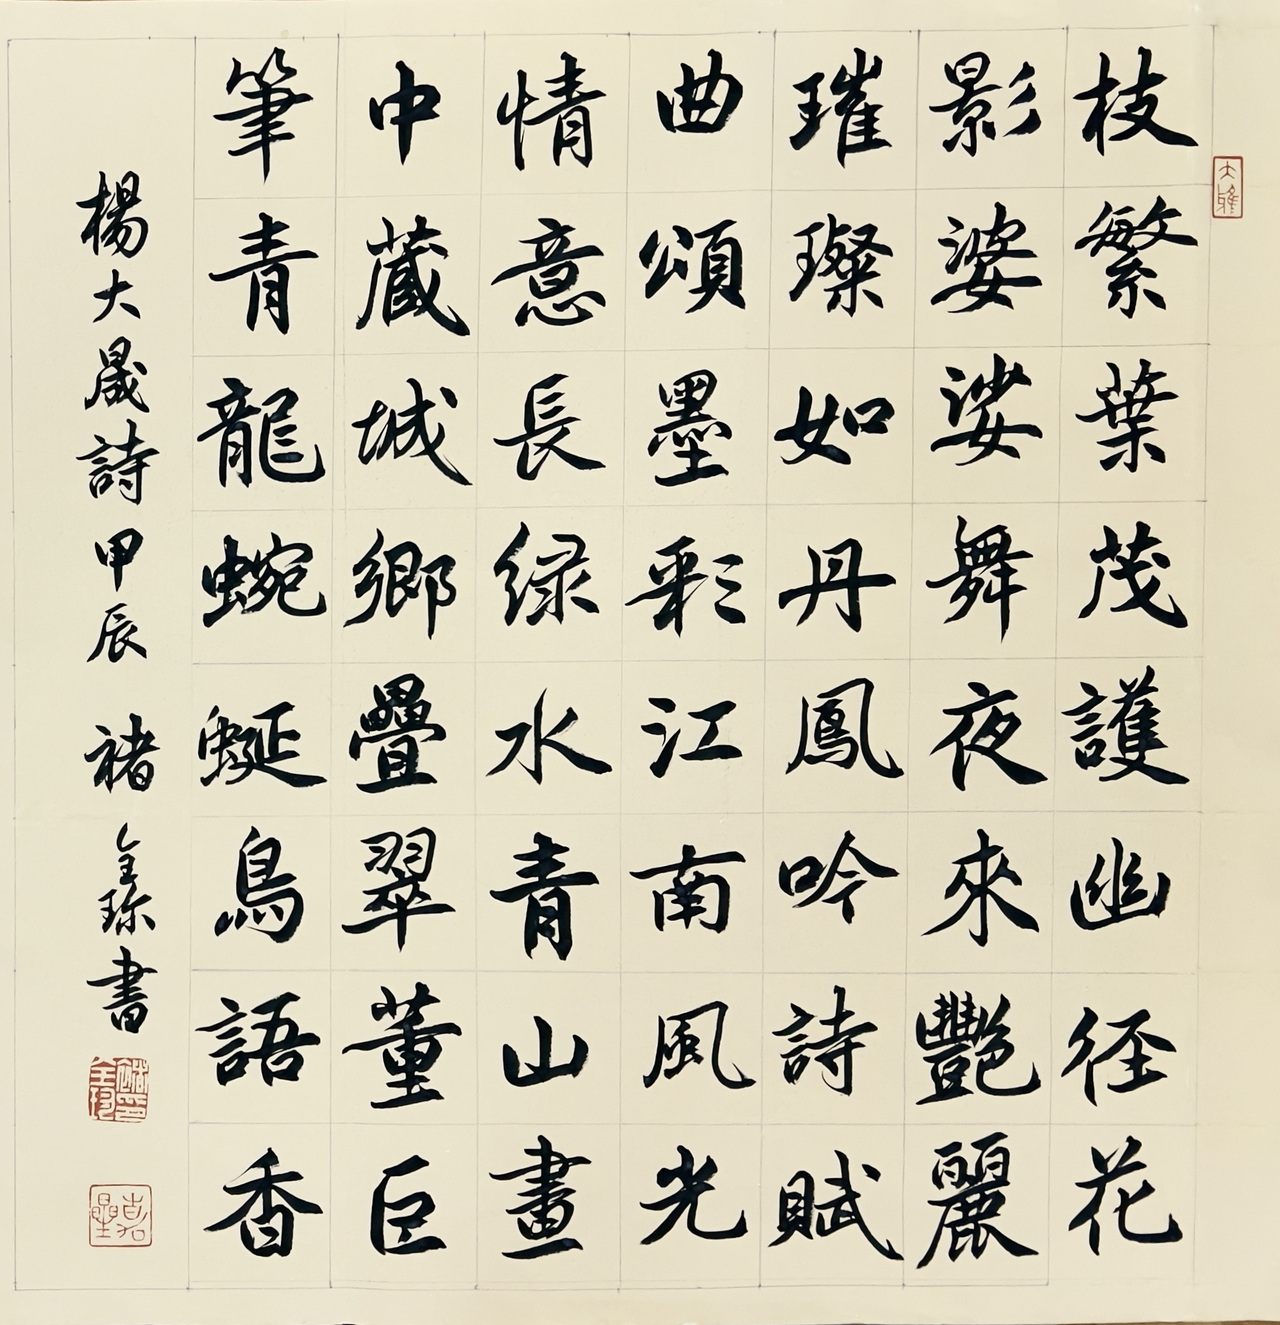 大雅
枝繁葉茂護幽径花
影婆娑舞夜來艷麗
璀璨如丹鳳吟詩賦
曲頌墨彩江南風光
情意長绿水青山畫
中蔵城鄉疊翠董巨
筆青龍蜿蜒鳥語香
楊大晟詩甲辰 褚全珎書